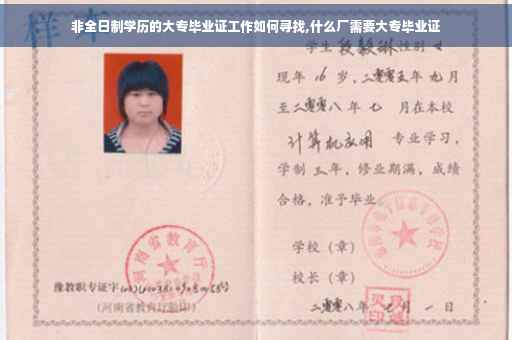 非全日制学历的大专毕业证工作如何寻找,什么厂需要大专毕业证
样本
学生段毅琳性别女
现年16岁,二零零五年九月
至二零零八年七月在本校
计算机应用 专业学习,
学制三年,修业期满,成绩
合格,准予毕业。
河南省教育厅
学校(章)
校长(章)
豫教职专证字
(河南省教育厅验印)
二零零八年七月一日